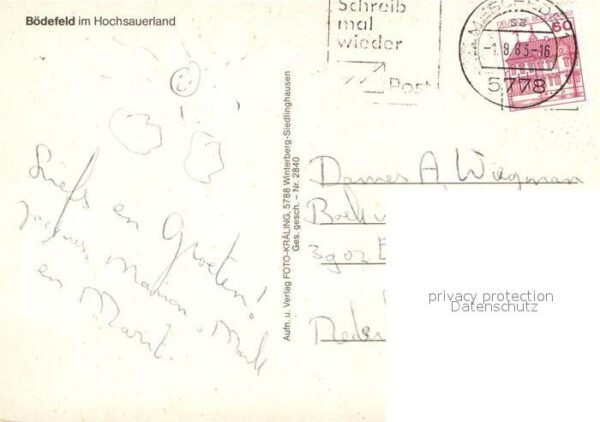 Bödefeld im Hochsauerland
Schreib
mal
wieder
Post
60
-1.8.83-16
5778
Liefs en Groeten!
Jacques, Marion, Mark
en Marit.
Aufn. u. Verlag FOTO-KRÄLING, 5788 Winterberg-Siedlinghausen
Ges. gesch. – Nr. 2840
A. Wiegman
3902
Neder
privacy protection
Datenschutz